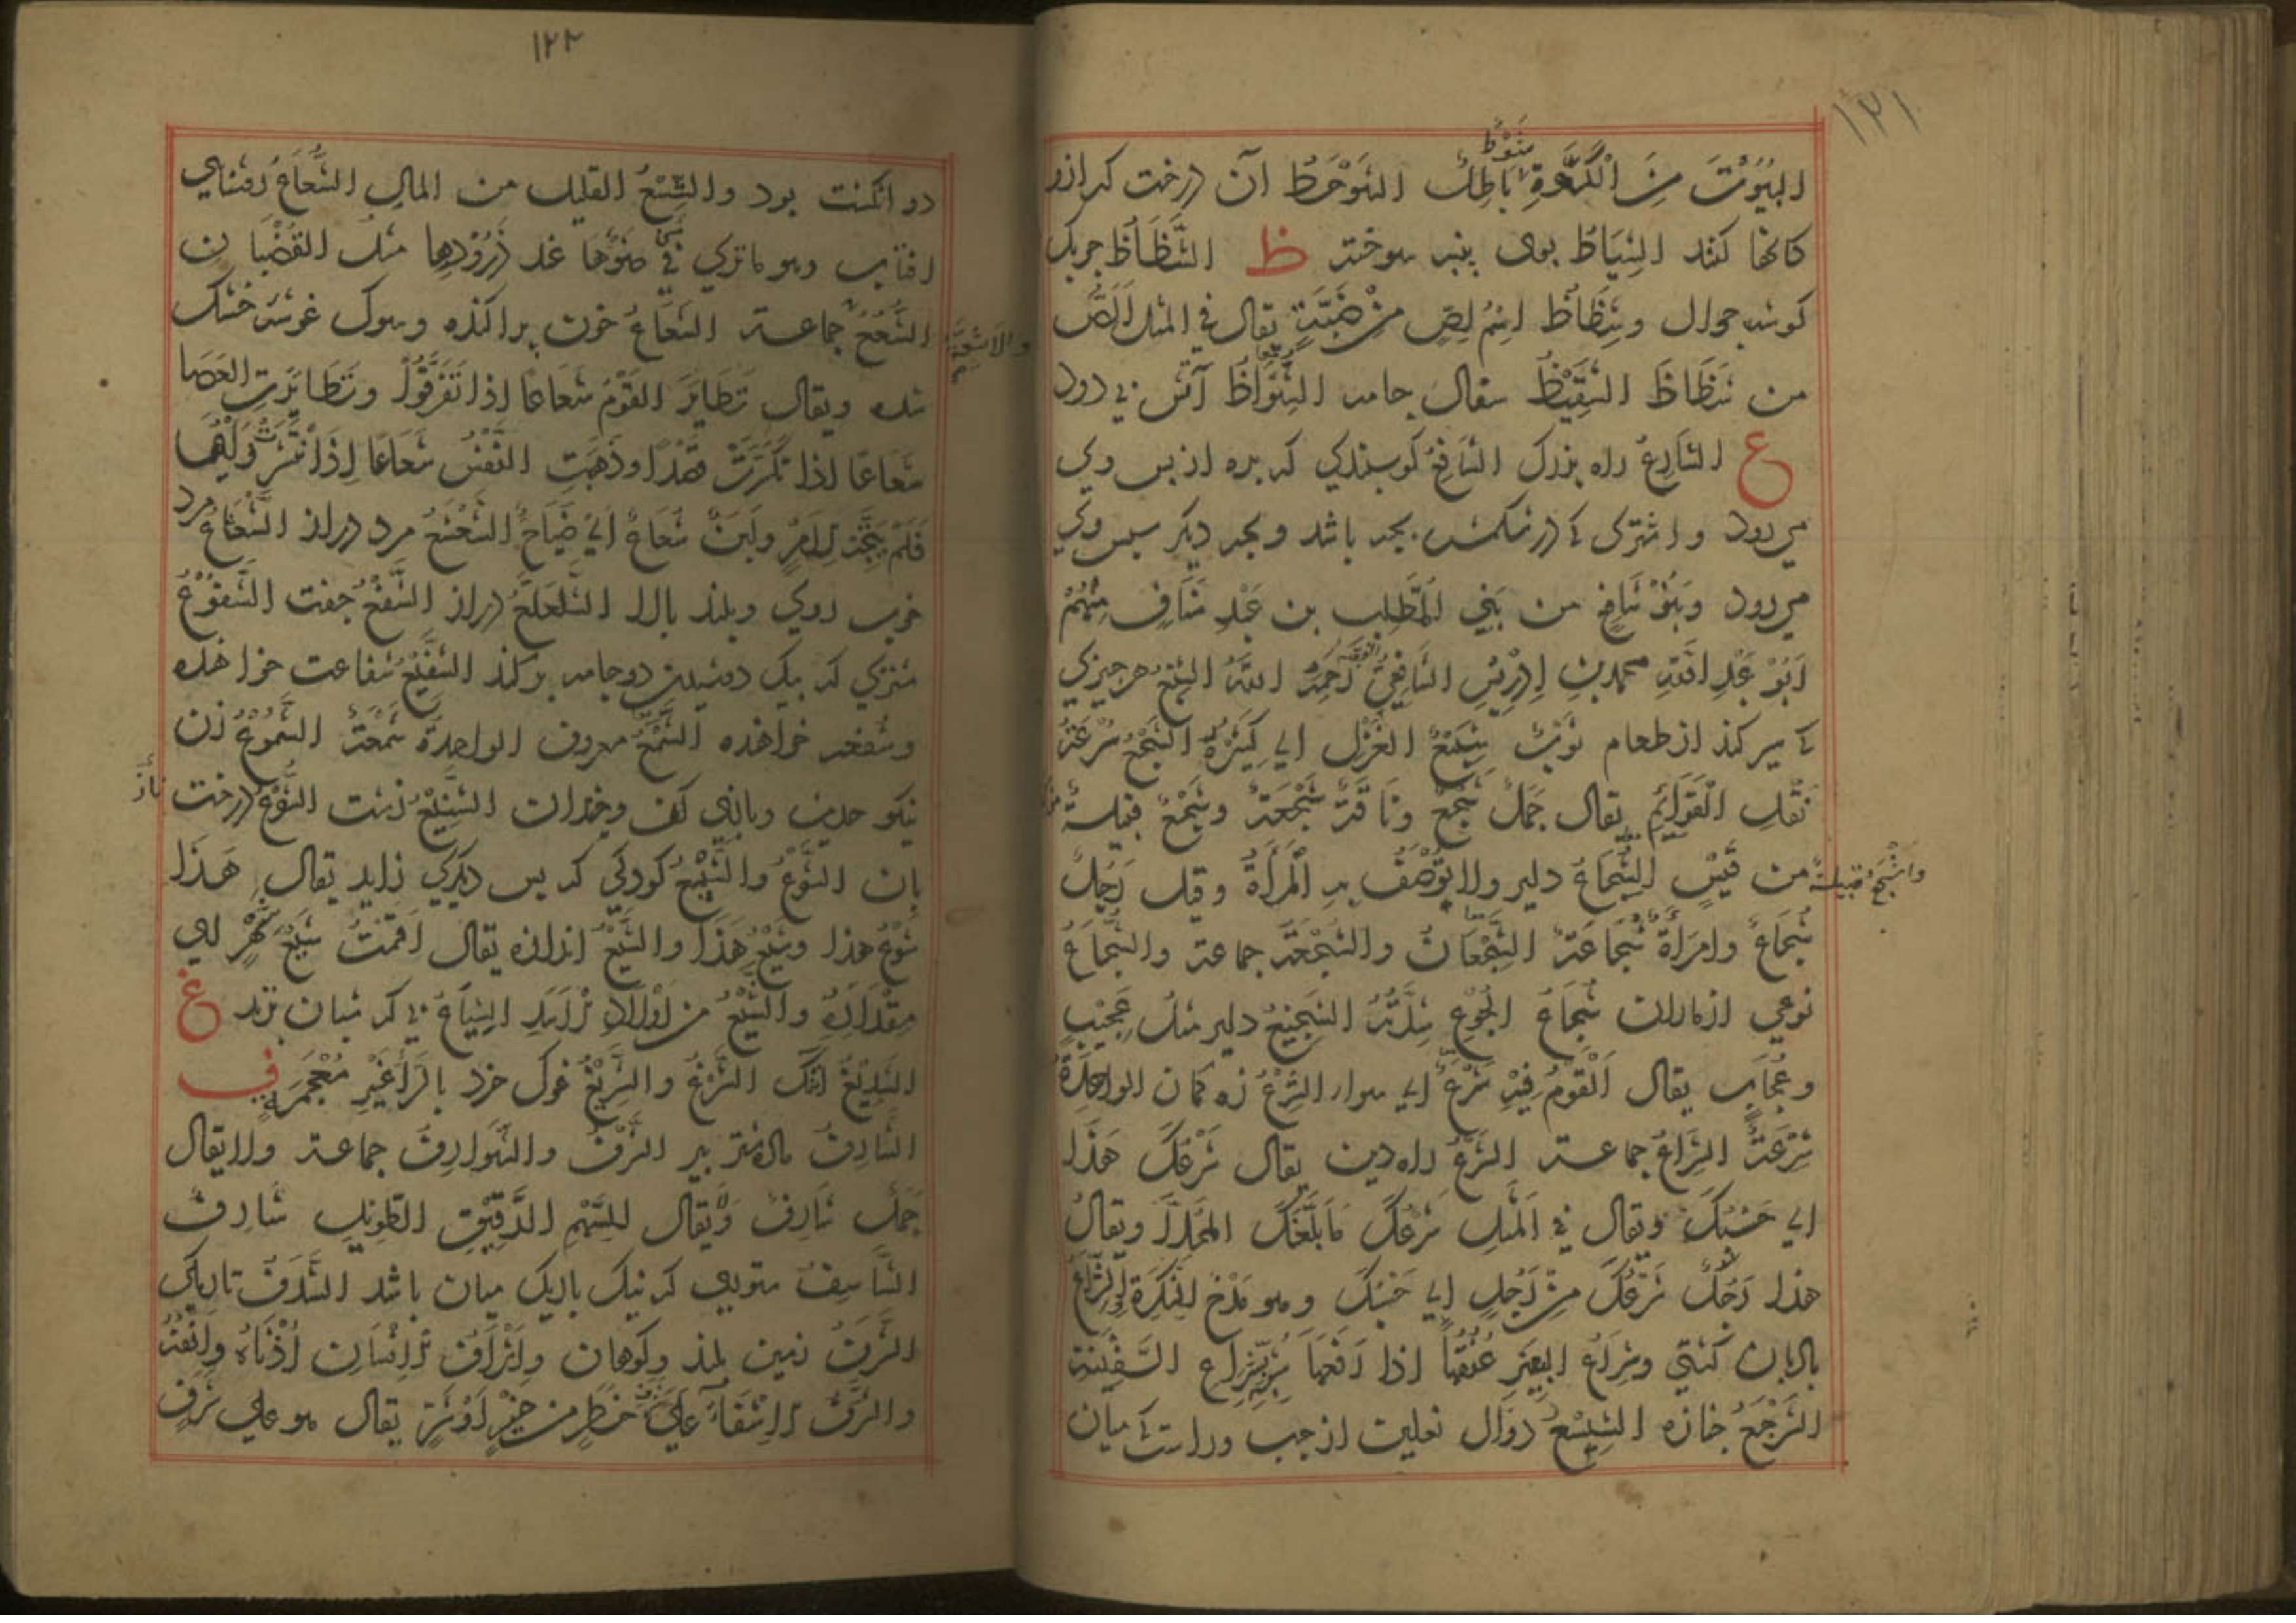 ١٢١
شوط
البيوت من الكوة باطل الشوحط آن درخت که ازو
کمانها کنند الشياط بوی پنبه سوخته ظ الشظاظ چوبک
کوشه جوال وشظاظ اسم لص من ضبة يقال في المثل الص
من شظاظ الشقيظ سفال خام الشواظ آتش بی دود
ع الشارع راه بزرك الشافع کوسپندی که بره از پس وی
می رود و اشتری که در شکمش بچه باشد و بچه دیکر سپس وی
می رود وبنو شافع من بني المطلب بن عبد مناف منهم
ابو عبد الله محمد بن ادريس الشافعي الفقيه رحمه الله الشبع هر چیزی
که سیر کند از طعام ثوب شبيع الغزل اي كثيره الشجع سرعة
نقل القوائم يقال جمل شجع وناقة شجعة وشجع قبيلة
واشجع قبيلة
من قيس الشجاع دلیر ولا توصف به المرأة وقيل رجل
شجاع وامرأة شجاعة الشجعان والشجعة جماعة والشجاع
نوعی از ماران شجاع الجوع شدته الشجيع دلیر مثل عجيب
وعجاب يقال القوم فيه شرع اي سواء الشرع زه کمان الواحدة
شرعة الشراع جماعة الشرع راه دین يقال شرعك هذا
اي حسبك ويقال في المثل شرعك ما بلغك المحلا ويقال
هذا رجل شرعك من رجل اي حسبك وهو مدح للنكرة الشراع
بادبان کشتی وشراع البعير عنقها اذا رفعها شبه بشراع السفينة
الشرجع جنازه الشسع دوال نعلین از چپ وراست که میان
١٢٢
دو انکشت بود والشسع القليل من المال الشعاع روشنایی
افتاب وهو ما تری في ضوءها عند ذرودها مثل القضبان
والاشعة
الشعع جماعة الشعاع خون پراکنده وسوک خوشه خشک
شده ويقال تطاير القوم شعاعا اذا تفرقوا وتطايرت العصا
شعاعا اذا تكسرت قصدا وذهبت النفس شعاعا اذا انتشر رايها
فلم يتجه لامر ولبن شعاع اي ضياح الشعشع مرد دراز الشعشاع مرد
خوب روی وبلند بالا الشلعلع دراز الشفع جفت الشفوع
شتری که بیک دوشیدن دو جامه پر کند الشفيع شفاعت خواهنده
وشفعه خواهنده الشمع معروف الواحدة شمعة الشموع زن
نیکو حدیث وبازی کن وخندان الشنيع زشت الشوع درخت
بان الشوع والشيع کودکی که پس دیکری زاید يقال هذا
شوع هذا وشيع هذا والشيع اندازه يقال اقمت شيع شهر اي
مقداره والشيع من اولاد الاسد الشياع نی که شبان زند غ
الشديغ اشک الشرغ والشريغ غوک خرد بالراء غير معجمة ف
الشارف ماده شتر پیر الشرف والشوارف جماعة ولا يقال
جمل شارف ويقال للسهم الدقيق الطويل شارف
الشاسف ستوری که نیک باریک میان باشد الشدف تاریکی
الشرف زمین بلند وکوهان واشراف الانسان اذناه وانفه
والشرف الاشفاء علی خطر من خير او شر يقال هو علی شرف